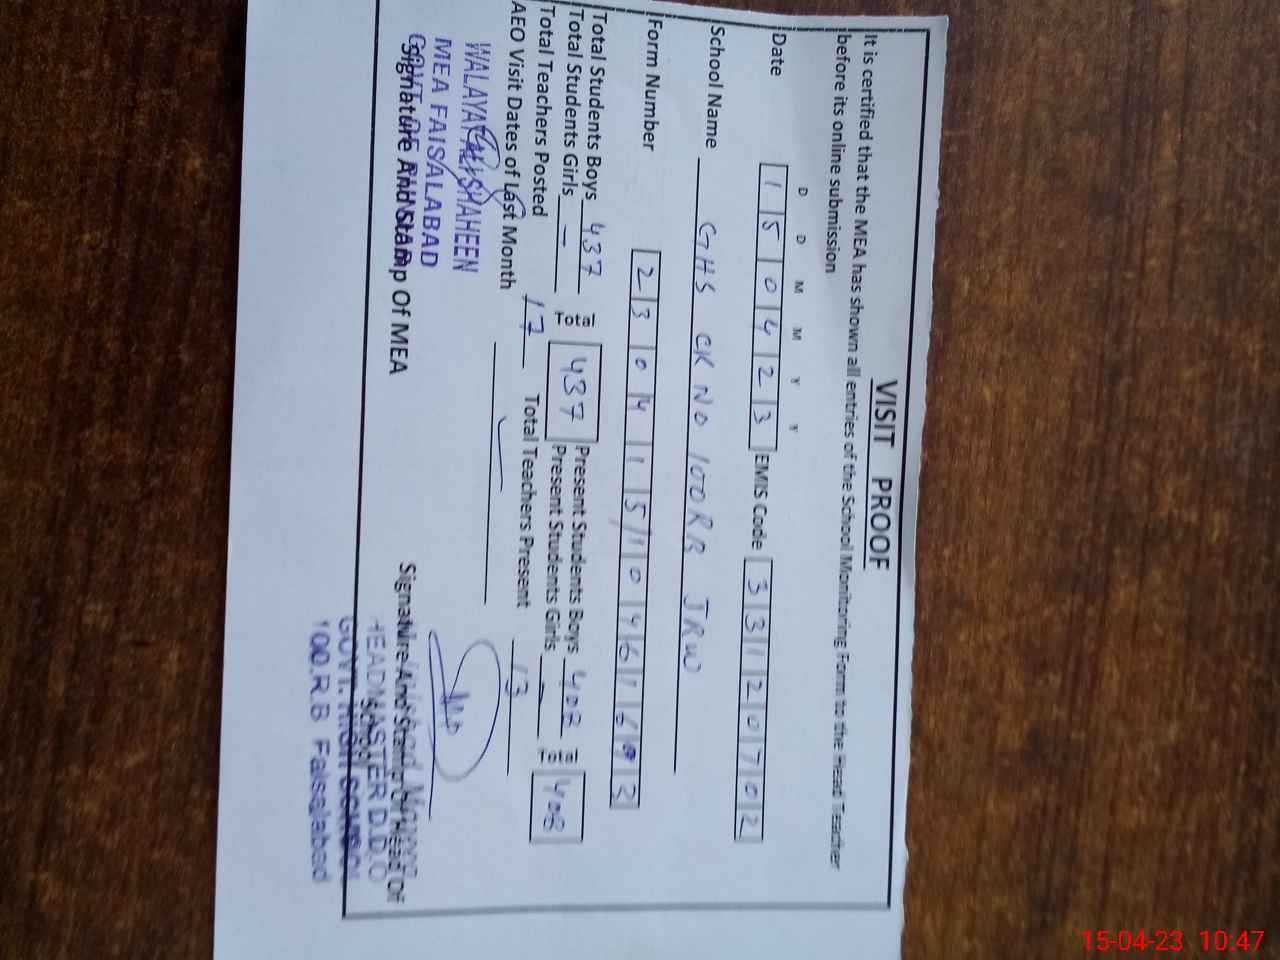 VISIT PROOF
It is certified that the MEA has shown all entries of the School Monitoring Form to the Head Teacher
before its online submission
D D M M Y Y
Date 1 5 0 4 2 3 EMIS Code 3 3 1 2 0 7 0 2
School Name GHS CK NO 100RB JRW
Form Number 2 3 0 4 1 5 1 0 4 6 1 6
Total Students Boys 437 Total 437 Present Students Boys 408 Total 408
Total Students Girls — Present Students Girls —
Total Teachers Posted 17 Total Teachers Present 13
AEO Visit Dates of Last Month
WALAYAT ALI SHAHEEN
MEA FAISALABAD
Signature And Stamp Of MEA
Signature And Stamp Of Head Of
HEADMASTER D.D.O
GOVT. HIGH SCHOOL
100.R.B Faisalabad
15-04-23 10:47